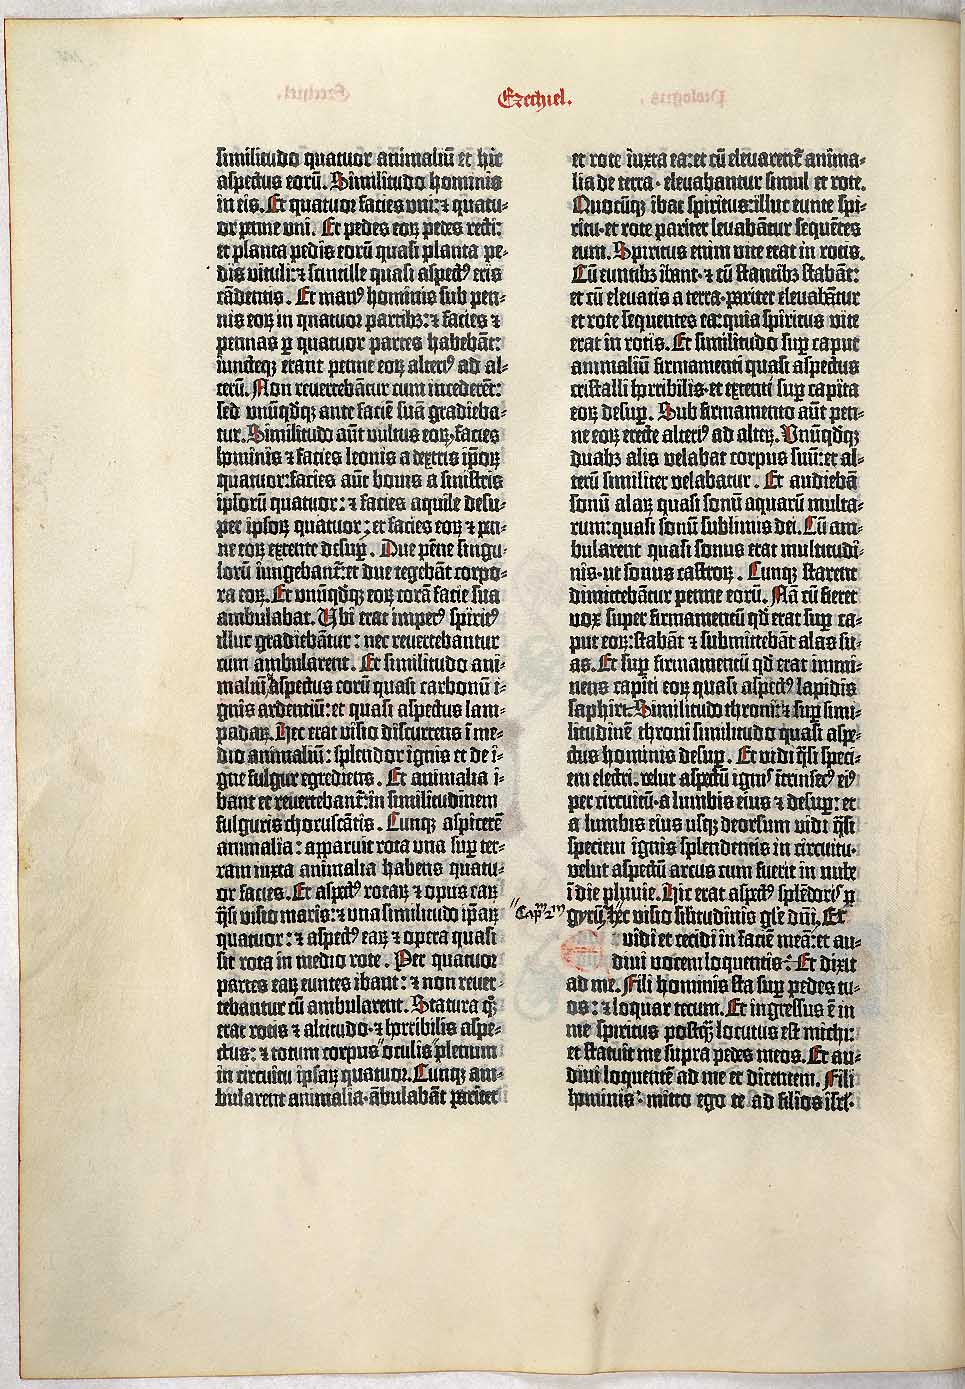 Ezechiel.
similitudo quatuor animaliū et hic
aspectus eorū. Similitudo hominis
in eis. Et quatuor facies uni: ⁊ quatu-
or penne uni. Et pedes eoꝝ pedes recti:
et planta pedis eorū quasi planta pe-
dis vituli: ⁊ scintille quasi aspectꝰ eris
cādentis. Et manꝰ hominis sub pen-
nis eoꝝ in quatuor partibꝫ: ⁊ facies ⁊
pennas ꝑ quatuor partes habebāt:
iuncteqꝫ erant penne eoꝝ alteriꝰ ad al-
terū. Non revertebātur cum incederēt:
sed unūqd̄qꝫ ante faciē suā gradieba-
tur. Similitudo aūt vultus eoꝝ, facies
hominis ⁊ facies leonis a dextris ip̄oꝝ
quatuor: facies aūt bovis a sinistris
ipsorū quatuor: ⁊ facies aquile desu-
per ipsoꝝ quatuor: et facies eoꝝ ⁊ pen-
ne eoꝝ extente desuꝑ. Due pēne singu-
lorū iungebant̄: et due tegebāt corpo-
ra eoꝝ. Et unūqd̄qꝫ eoꝝ corā facie sua
ambulabat. Ubi erat impetꝰ spiritꝰ
illuc gradiebātur: nec revertebantur
cum ambularent. Et similitudo ani-
maliū aspectus eorū quasi carbonū i-
gnis ardentiū: et quasi aspectus lam-
padaꝝ. Hec erat visio discurrens ī me-
dio animaliū: splendor ignis et de i-
gne fulgur egrediens. Et animalia i-
bant et revertebant̄: in similitudinem
fulguris choruscātis. Cunqꝫ aspicerē
animalia: apparuit rota una suꝑ ter-
ram iuxta animalia habens quatu-
or facies. Et aspectꝰ rotaꝝ ⁊ opus eaꝝ
q̄si visio maris: ⁊ una similitudo ip̄aꝝ
quatuor: ⁊ aspectꝰ eaꝝ ⁊ opera quasi
sit rota in medio rote. Per quatuor
partes eaꝝ euntes ibant: ⁊ non rever-
tebantur cū ambularent. Statura qꝫ
erat rotis ⁊ altitudo ⁊ horribilis aspe-
ctus: ⁊ totum corpus oculis plenum
in circuitu ipsaꝝ quatuor. Cunqꝫ am-
bularent animalia ābulabāt pariter
et rote iuxta ea: et cū elevarent̄ anima-
lia de terra elevabantur simul et rote.
Quocūqꝫ ibat spiritus: illuc eunte spi-
ritu et rote pariter levabātur sequētes
eum. Spiritus enim vite erat in rotis.
Cū euntibꝫ ibant ⁊ cū stantibꝫ stabāt:
et cū elevatis a terra pariter elevabātur
et rote sequentes ea: quia spiritus vite
erat in rotis. Et similitudo suꝑ caput
animaliū firmamenti quasi aspectus
cristalli horribilis et extenti suꝑ capita
eoꝝ desuꝑ. Sub firmamento aūt pen-
ne eoꝝ erecte alteriꝰ ad alteꝝ. Unūqd̄qꝫ
duabꝫ alis velabat corpus suū: et al-
terū similiter velabatur. Et audiebā
sonū alaꝝ quasi sonū aquarū multa-
rum: quasi sonū sublimis dei. Cū am-
bularent quasi sonus erat multitudi-
nis ut sonus castroꝝ. Cunqꝫ starent
dimittebātur penne eorū. Nā cū fieret
vox super firmamentū qd̄ erat suꝑ ca-
put eoꝝ: stabāt ⁊ submittebāt alas su-
as. Et suꝑ firmamentū qd̄ erat immi-
nens capiti eoꝝ quasi aspectꝰ lapidis
saphiri Similitudo throni: ⁊ suꝑ simi-
litudinē throni similitudo quasi aspe-
ctus hominis desuꝑ. Et vidi q̄si speci-
em electri. velut aspectū ignis ītrinsecꝰ eiꝰ
per circuitū a lumbis eius ⁊ desuꝑ: et
a lumbis eius usqꝫ deorsum vidi q̄si
speciem ignis splendentis in circuitu.
velut aspectū arcus cum fuerit in nube
ī die pluvie. Hic erat aspectꝰ splēdoris ꝑ
Capm 2m
gyrū. Hec visio silitudinis gl̄e dn̄i. Et
vidi et cecidi in faciē meā: et au-
divi vocem loquentis. Et dixit
ad me. Fili hominis sta suꝑ pedes tu-
os: ⁊ loquar tecum. Et ingressus ē in
me spiritus postqꝫ locutus est michi:
et statuit me supra pedes meos. Et au-
divi loquentē ad me et dicentem. Fili
hominis: mitto ego te ad filios isrl̄.